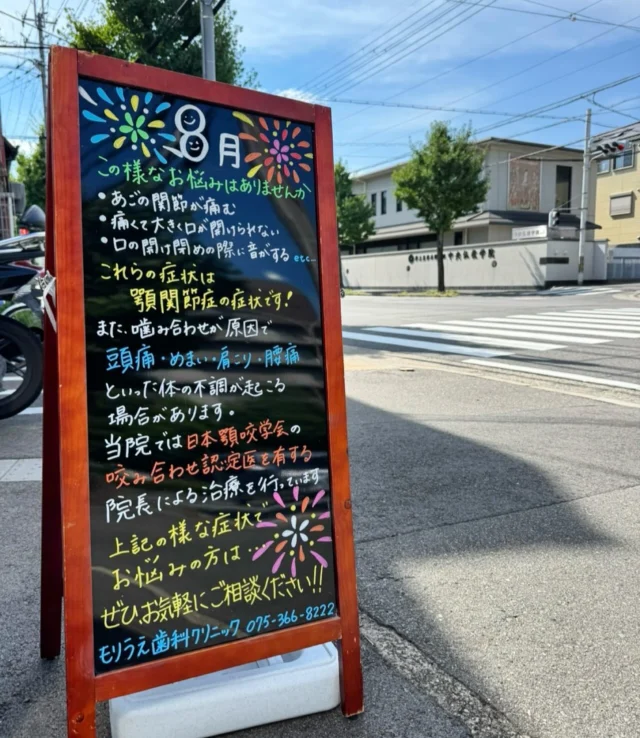 8月
この様なお悩みはありませんか
・あごの関節が痛む
・痛くて大きく口が開けられない
・口の開け閉めの際に音がする etc…
これらの症状は
顎関節症の症状です!
また、噛み合わせが原因で
頭痛・めまい・肩こり・腰痛
といった体の不調が起こる
場合があります。
当院では日本顎咬学会の
咬み合わせ認定医を有する
院長による治療を行っています
上記の様な症状で
お悩みの方は…
ぜひ、お気軽にご相談ください!!
モリうえ歯科クリニック 075-366-8222